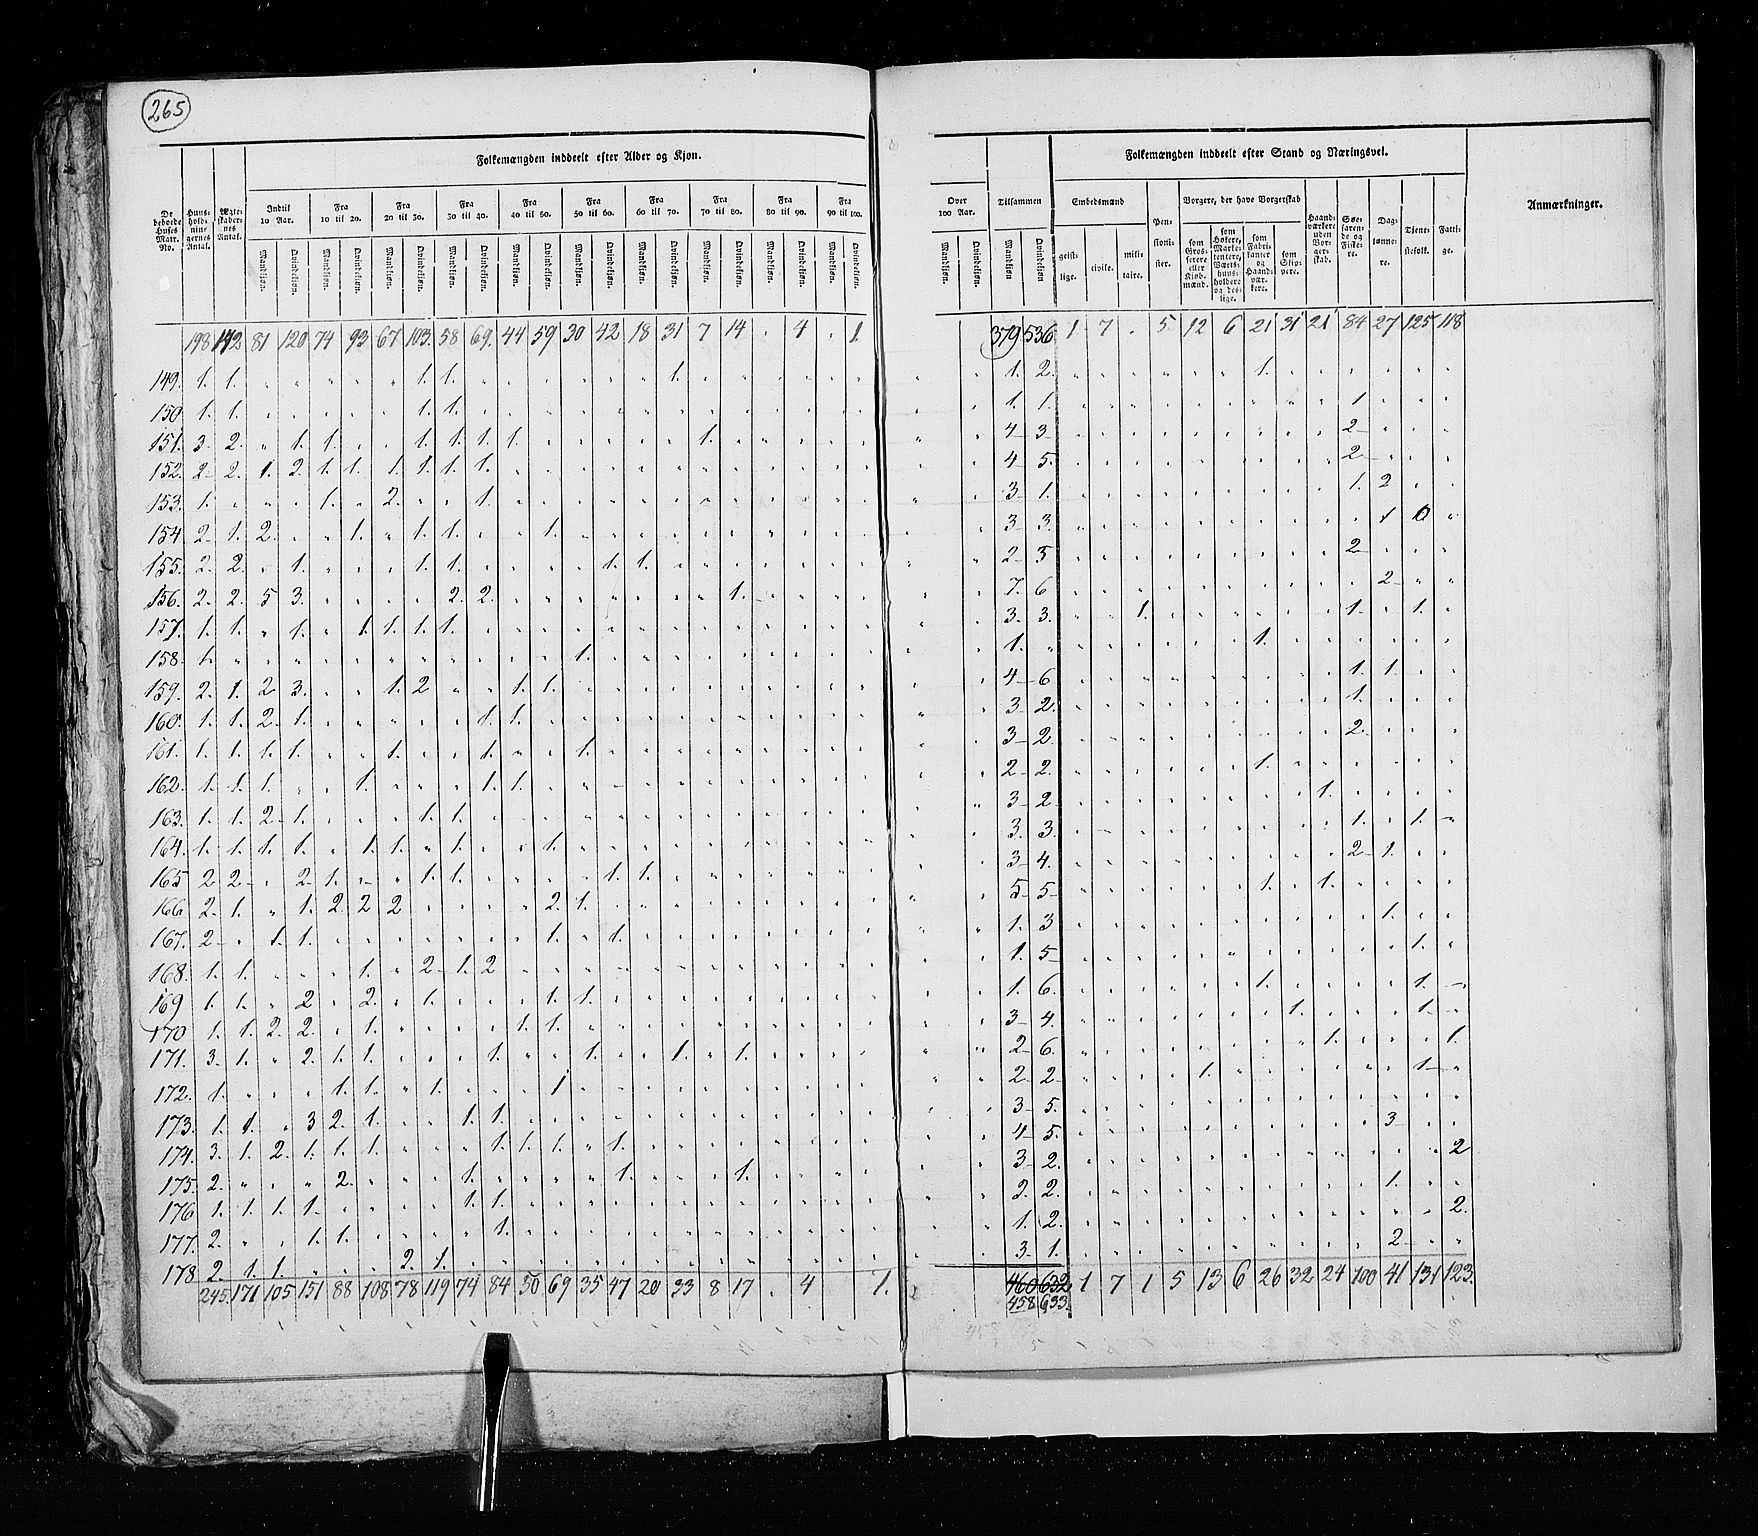 265
Folkemængden inddeelt efter Alder og Kjøn.
Folkemængden inddeelt efter Stand og Næringsvei.
Anmærkninger.
De beboede Huses Matr. No.
Huusholdningernes Antal.
Ægteskabernes Antal.
Indtil 10 Aar.
Fra 10 til 20.
Fra 20 til 30.
Fra 30 til 40.
Fra 40 til 50.
Fra 50 til 60.
Fra 60 til 70.
Fra 70 til 80.
Fra 80 til 90.
Fra 90 til 100.
Over 100 Aar.
Tilsammen
Mandkjøn. Qvindekjøn.
Embedsmænd
geistlige. civile. militaire.
Pensionister.
Borgere, der have Borgerskab
som Grosserere eller Kjøbmænd.
som Høkere, Marketentere, Værtshuusholdere og deslige.
som Fabrikanter og Haandværkere.
som Skippere.
Haandværkere uden Borgerskab.
Søefarende og Fiskere.
Daglønnere.
Tjenestefolk.
Fattige.
198 142 81 120 74 93 67 103. 58 69. 44 59 30 42 18 31 7 14 . 4 . 1. 379 536 1 7 . 5 12 6 21 31 21 84 27 125 118
149. 1. 1. 1. 1. 1. 1. 2. 1.
150 1. 1. 1. 1. 1. 1. 1
151. 3. 2. 1. 1. 1. 1. 1. 1. 1. 4 3. 2
152. 2 2. 1. 2. 1. 1. 1. 1. 1. 1. 4 5. 2
153. 1. 1. 2. 1. 3 1. 1. 2
154 2 1. 2. 1. 1. 1. 1. 3 3. 1 0
155. 2. 2. 1. 1. 1. 1. 1. 2 3 2
156. 2. 2. 5 3. 2. 2. 1. 7. 6 2
157. 1. 1. 1. 1. 1. 1. 1. 3. 3. 1. 1. 1.
158. 1. 1. 1. 1.
159. 2. 1. 2 3. 1. 2 1. 1. 4 6 1. 1.
160. 1. 1. 2. 1. 1. 1. 3 2. 1.
161. 1. 1. 1. 1. 1. 1. 1. 3 2. 2.
162. 1. 1. 1. 1. 1. 1. 2 2. 1.
163. 1. 1. 2. 1. 1. 1. 3 2 1.
164. 1. 1. 1. 1. 1. 1. 1. 1. 3. 3. 1. 1.
165 2 2 2. 1. 1. 1. 1. 1. 3 4. 2 1.
166 2. 1. 1. 2. 2 2 2. 1. 5 5 1. 1.
167. 2 1. 1. 1. 1. 1. 3 1.
168. 1. 1. 1. 2 1. 2 1. 5 1.
169 1. 1. 2 2. 1. 1. 1. 1. 6. 1. 1.
170 1. 1. 2. 2. 1. 1. 1. 3 4. 1. 1.
171. 3. 1. 2. 1. 1. 1. 1. 1. 1. 2 6. 1. 1.
172. 1. 1. 1. 1. 1 2 2 1. 1
173. 1. 1. 3 2. 1. 1. 1. 3 5.
174. 3. 1. 2. 1. 1. 1. 1. 1. 1. 1. 4 5. 3
175. 2. 2. 1. 1. 1. 3 2. 2
176 1. 1. 1. 1. 1. 1. 2. 2. 1.
177. 2. 1. 1. 1. 1. 2. 2.
178 2. 1. 1. 2. 1. 3. 1. 2
245. 171 105 151 88 108 78 119 74 84 50 69 35 47 20 33 8 17 . 4 1. 460 632 1 7 1 5 13 6 26 32 24 100 41 131 123.
458 633.